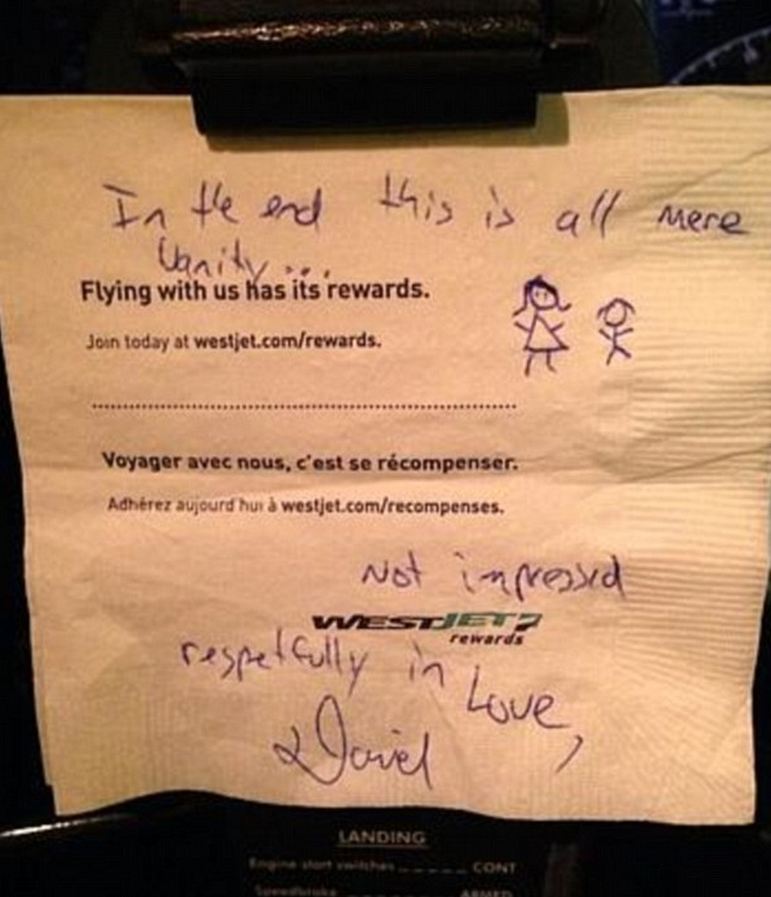 In the end this is all mere
Vanity....
Flying with us has its rewards.
Join today at westjet.com/rewards.
Voyager avec nous, c'est se récompenser.
Adhérez aujourd'hui à westjet.com/recompenses.
Not impressed
WESTJET
rewards
respetfully in Love,
David
LANDING
Engine start switches _ _ _ _ _ _ CONT
Speedbrake _ _ _ _ ARMED